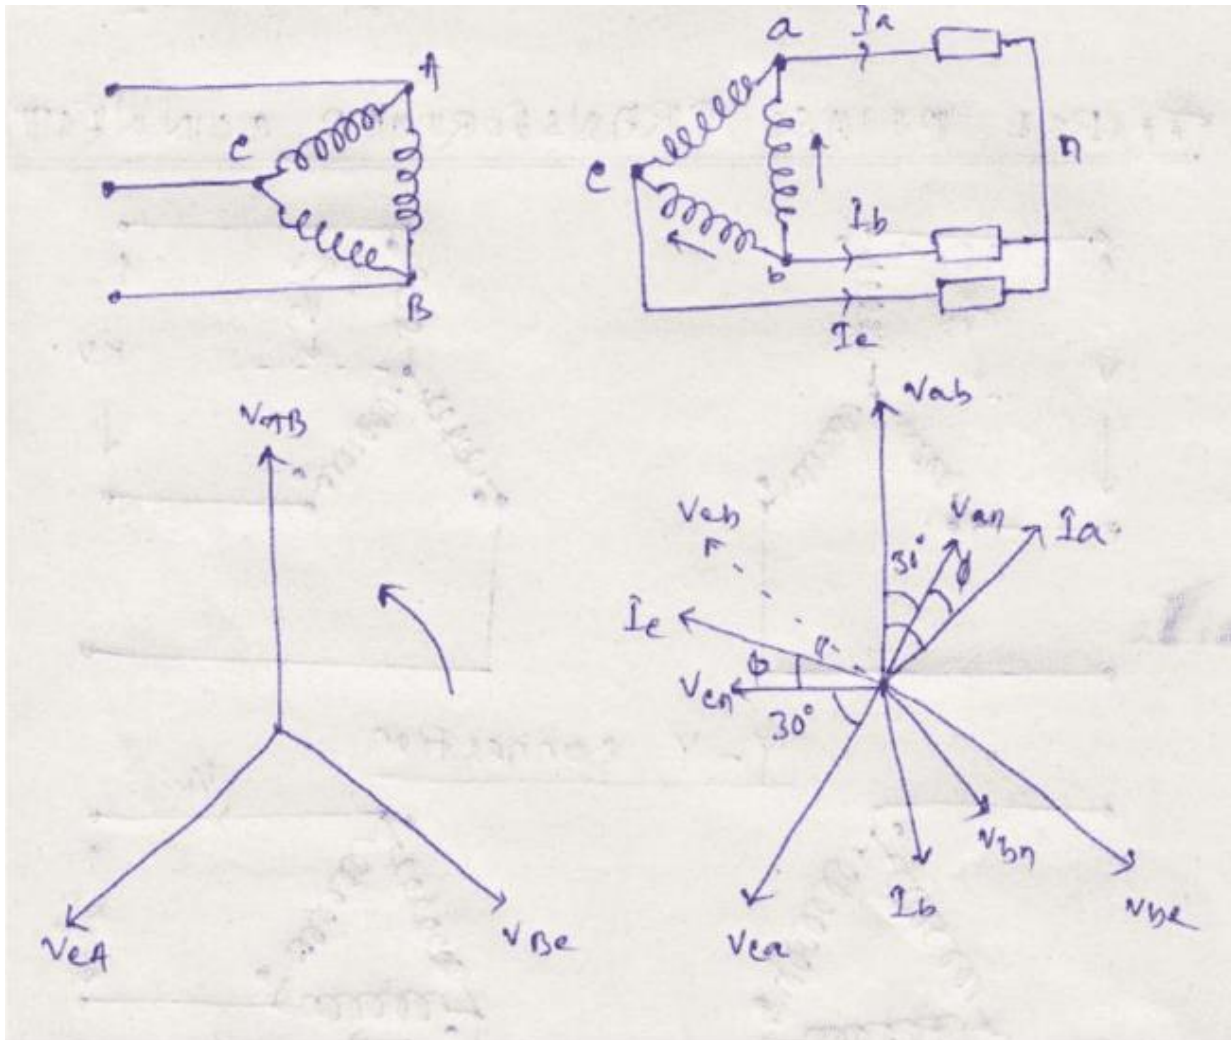 A
C
B
a
Ia
n
C
Ib
b
Ic
VAB
VCA
VBC
Vab
Vcb
Van
Ia
30°
φ
Ic
φ
Vcn
30°
Vbn
Ib
Vbc
Vca